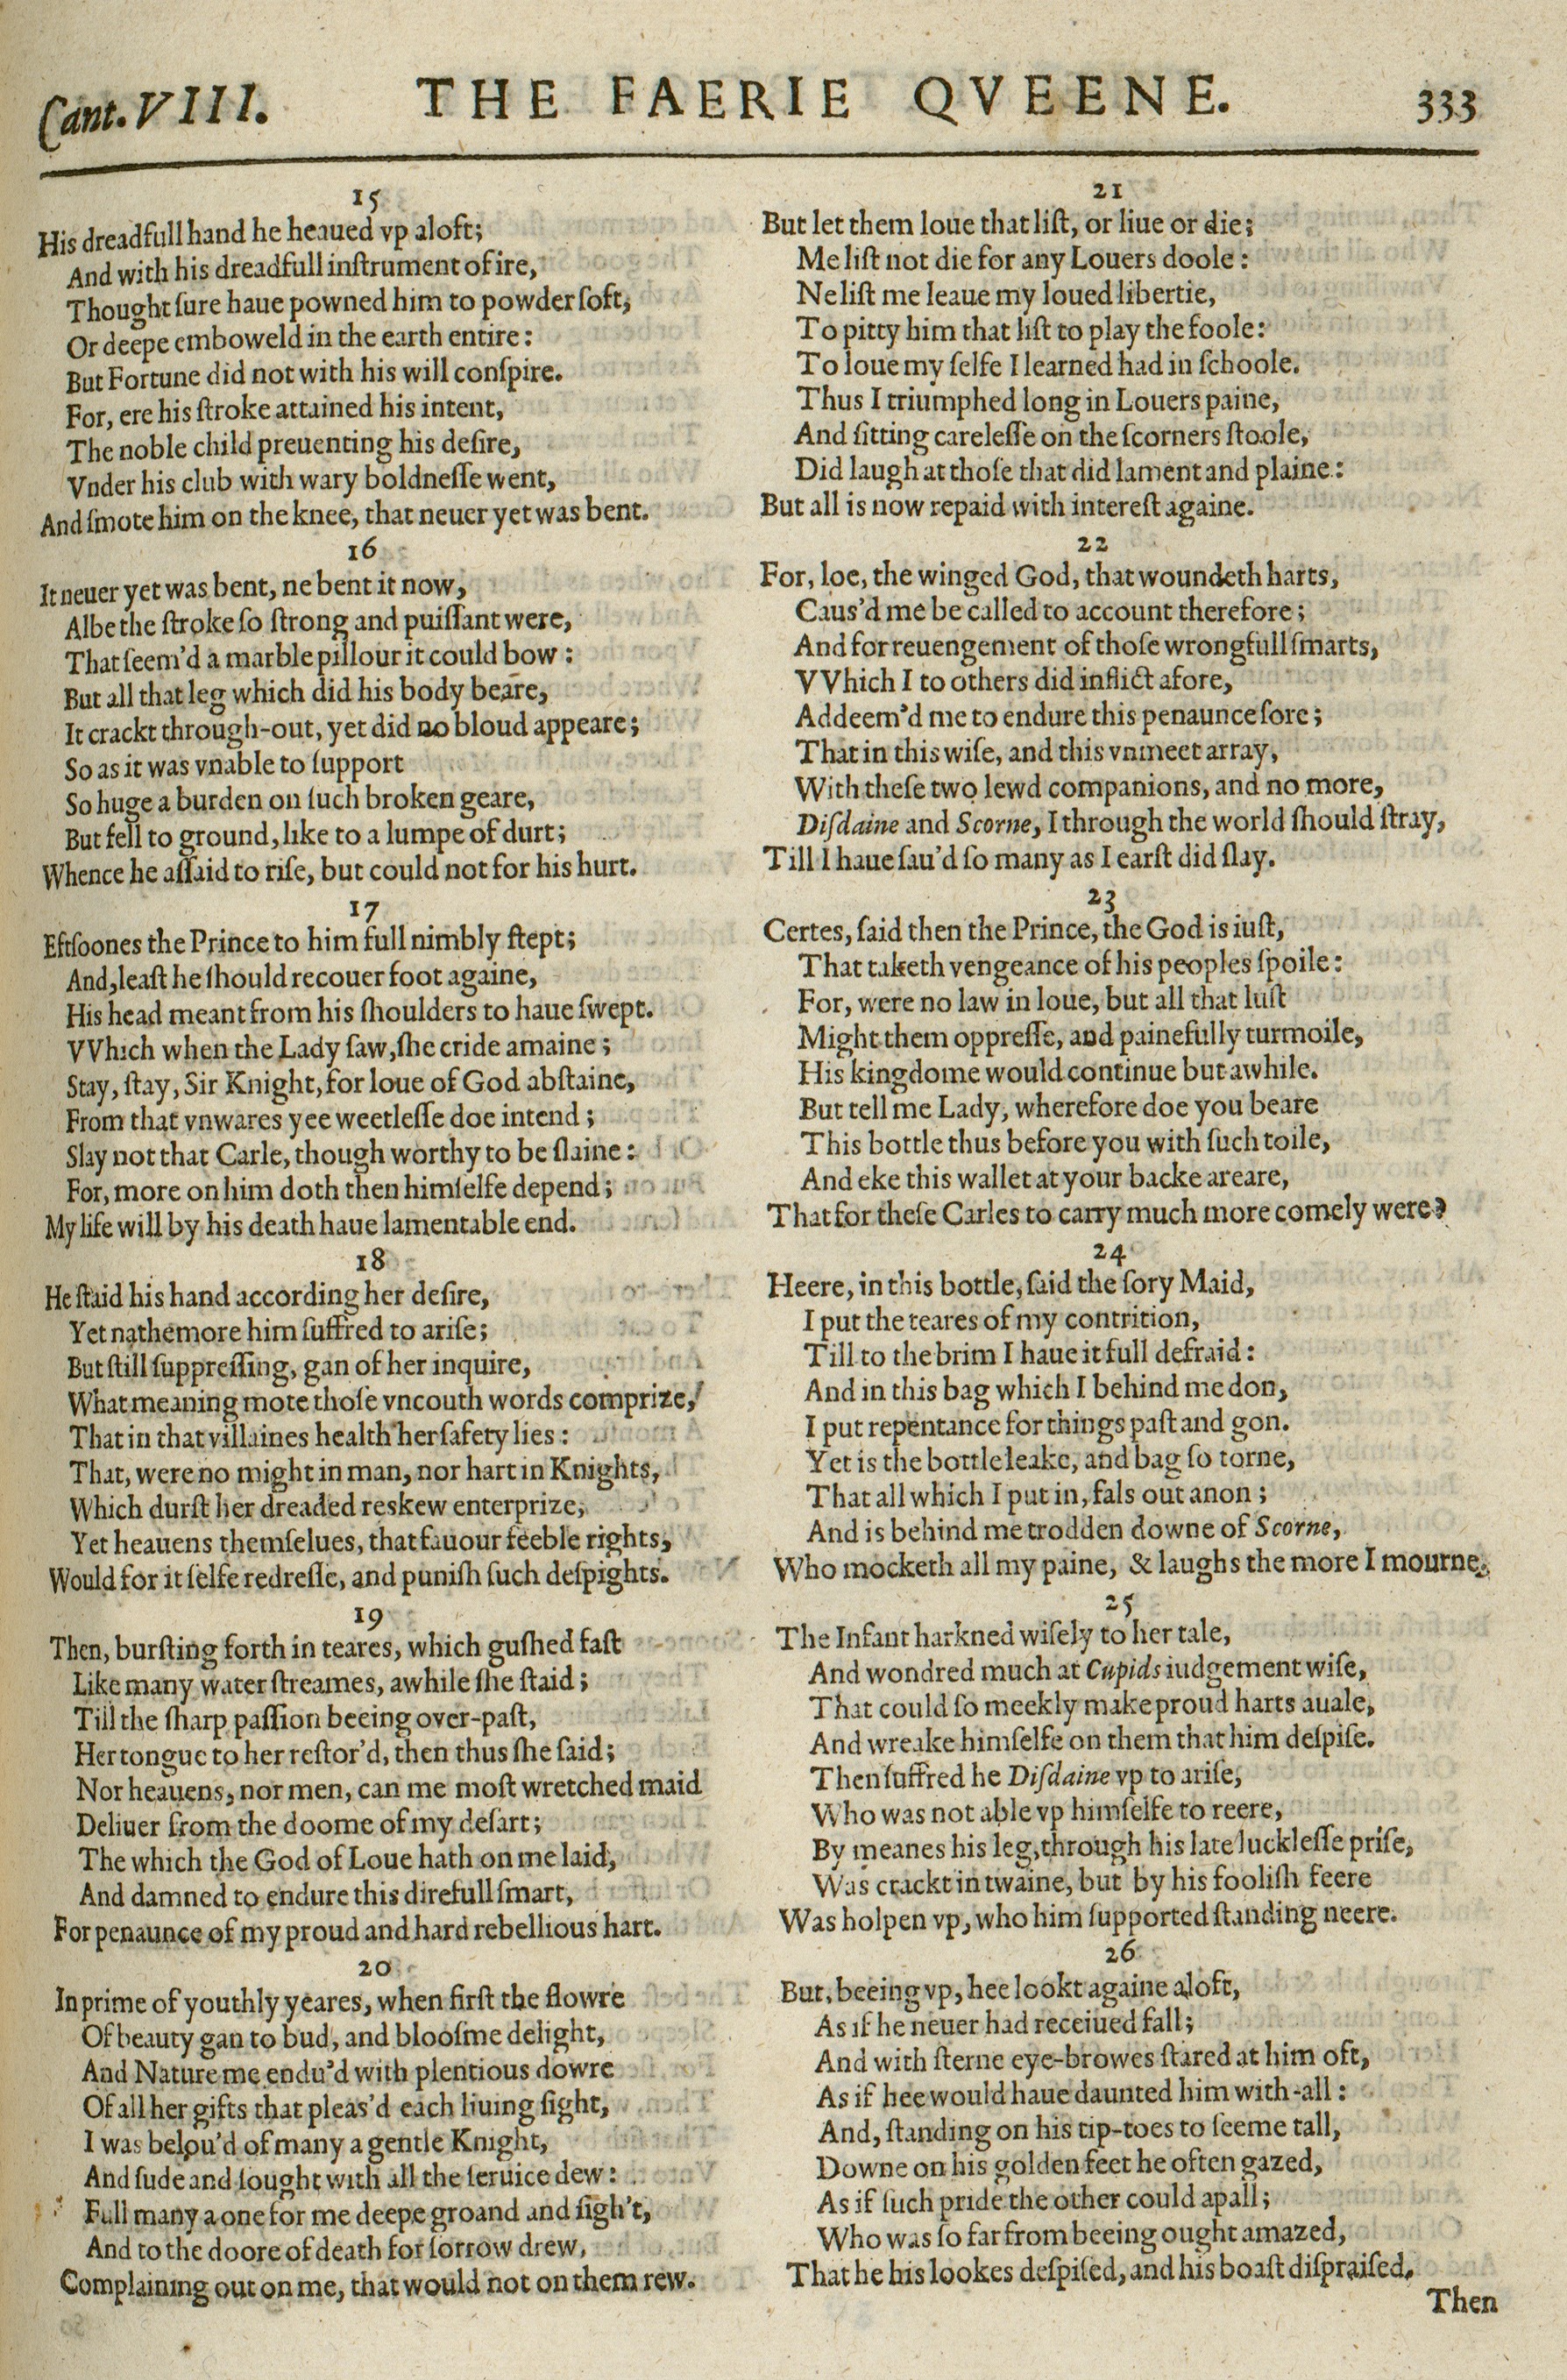 Cant. VIII. THE FAERIE QVEENE. 333
15
His dreadfull hand he heaued vp aloft;
And with his dreadfull inſtrument of ire,
Thought ſure haue powned him to powder ſoft,
Or deepe emboweld in the earth entire:
But Fortune did not with his will conſpire.
For, ere his ſtroke attained his intent,
The noble child preuenting his deſire,
Vnder his club with wary boldneſſe went,
And ſmote him on the knee, that neuer yet was bent.
16
It neuer yet was bent, ne bent it now,
Albe the ſtroke ſo ſtrong and puiſſant were,
That ſeem'd a marble pillour it could bow:
But all that leg which did his body beare,
It crackt through-out, yet did no bloud appeare;
So as it was vnable to ſupport
So huge a burden on ſuch broken geare,
But fell to ground, like to a lumpe of durt;
Whence he aſſaid to riſe, but could not for his hurt.
17
Eftſoones the Prince to him full nimbly ſtept;
And, leaſt he ſhould recouer foot againe,
His head meant from his ſhoulders to haue ſwept.
VVhich when the Lady ſaw, ſhe cride amaine;
Stay, ſtay, Sir Knight, for loue of God abſtaine,
From that vnwares yee weetleſſe doe intend;
Slay not that Carle, though worthy to be ſlaine:
For, more on him doth then himſelfe depend;
My life will by his death haue lamentable end.
18
He ſtaid his hand according her deſire,
Yet nathemore him ſuffred to ariſe;
But ſtill ſuppreſſing, gan of her inquire,
What meaning mote thoſe vncouth words comprize,
That in that villaines health her ſafety lies:
That, were no might in man, nor hart in Knights,
Which durſt her dreaded reskew enterprize,
Yet heauens themſelues, that fauour feeble rights,
Would for it ſelfe redreſſe, and puniſh ſuch deſpights.
19
Then, burſting forth in teares, which guſhed faſt
Like many water ſtreames, awhile ſhe ſtaid;
Till the ſharp paſſion beeing over-paſt,
Her tongue to her reſtor'd, then thus ſhe ſaid;
Nor heauens, nor men, can me moſt wretched maid
Deliuer from the doome of my deſart;
The which the God of Loue hath on me laid,
And damned to endure this direfull ſmart,
For penaunce of my proud and hard rebellious hart.
20
In prime of youthly yeares, when firſt the flowre
Of beauty gan to bud, and blooſme delight,
And Nature me endu'd with plentious dowre
Of all her gifts that pleas'd each liuing ſight,
I was belou'd of many a gentle Knight,
And ſude and ſought with all the ſeruice dew:
Full many a one for me deepe groand and ſigh't,
And to the doore of death for ſorrow drew,
Complaining out on me, that would not on them rew.
21
But let them loue that liſt, or liue or die;
Me liſt not die for any Louers doole:
Ne liſt me leaue my loued libertie,
To pitty him that liſt to play the foole:
To loue my ſelfe I learned had in ſchoole.
Thus I triumphed long in Louers paine,
And ſitting careleſſe on the ſcorners ſtoole,
Did laugh at thoſe that did lament and plaine:
But all is now repaid with intereſt againe.
22
For, loe, the winged God, that woundeth harts,
Caus'd me be called to account therefore;
And for reuengement of thoſe wrongfull ſmarts,
VVhich I to others did inflict afore,
Addeem'd me to endure this penaunce ſore;
That in this wiſe, and this vnmeet array,
With theſe two lewd companions, and no more,
Diſdaine and Scorne, I through the world ſhould ſtray,
Till I haue ſau'd ſo many as I earſt did ſlay.
23
Certes, ſaid then the Prince, the God is iuſt,
That taketh vengeance of his peoples ſpoile:
For, were no law in loue, but all that luſt
Might them oppreſſe, and painefully turmoile,
His kingdome would continue but awhile.
But tell me Lady, wherefore doe you beare
This bottle thus before you with ſuch toile,
And eke this wallet at your backe areare,
That for theſe Carles to carry much more comely were?
24
Heere, in this bottle, ſaid the ſory Maid,
I put the teares of my contrition,
Till to the brim I haue it full defraid:
And in this bag which I behind me don,
I put repentance for things paſt and gon.
Yet is the bottle leake, and bag ſo torne,
That all which I put in, fals out anon;
And is behind me trodden downe of Scorne,
Who mocketh all my paine, & laughs the more I mourne.
25
The Infant harkned wiſely to her tale,
And wondred much at Cupids iudgement wiſe,
That could ſo meekly make proud harts auale,
And wreake himſelfe on them that him deſpiſe.
Then ſuffred he Diſdaine vp to ariſe,
Who was not able vp himſelfe to reere,
By meanes his leg, through his late luckleſſe priſe,
Was crackt in twaine, but by his fooliſh feere
Was holpen vp, who him ſupported ſtanding neere.
26
But, beeing vp, hee lookt againe aloft,
As if he neuer had receiued fall;
And with ſterne eye-browes ſtared at him oft,
As if hee would haue daunted him with-all:
And, ſtanding on his tip-toes to ſeeme tall,
Downe on his golden feet he often gazed,
As if ſuch pride the other could apall;
Who was ſo far from beeing ought amazed,
That he his lookes deſpiſed, and his boaſt diſpraiſed.
Then